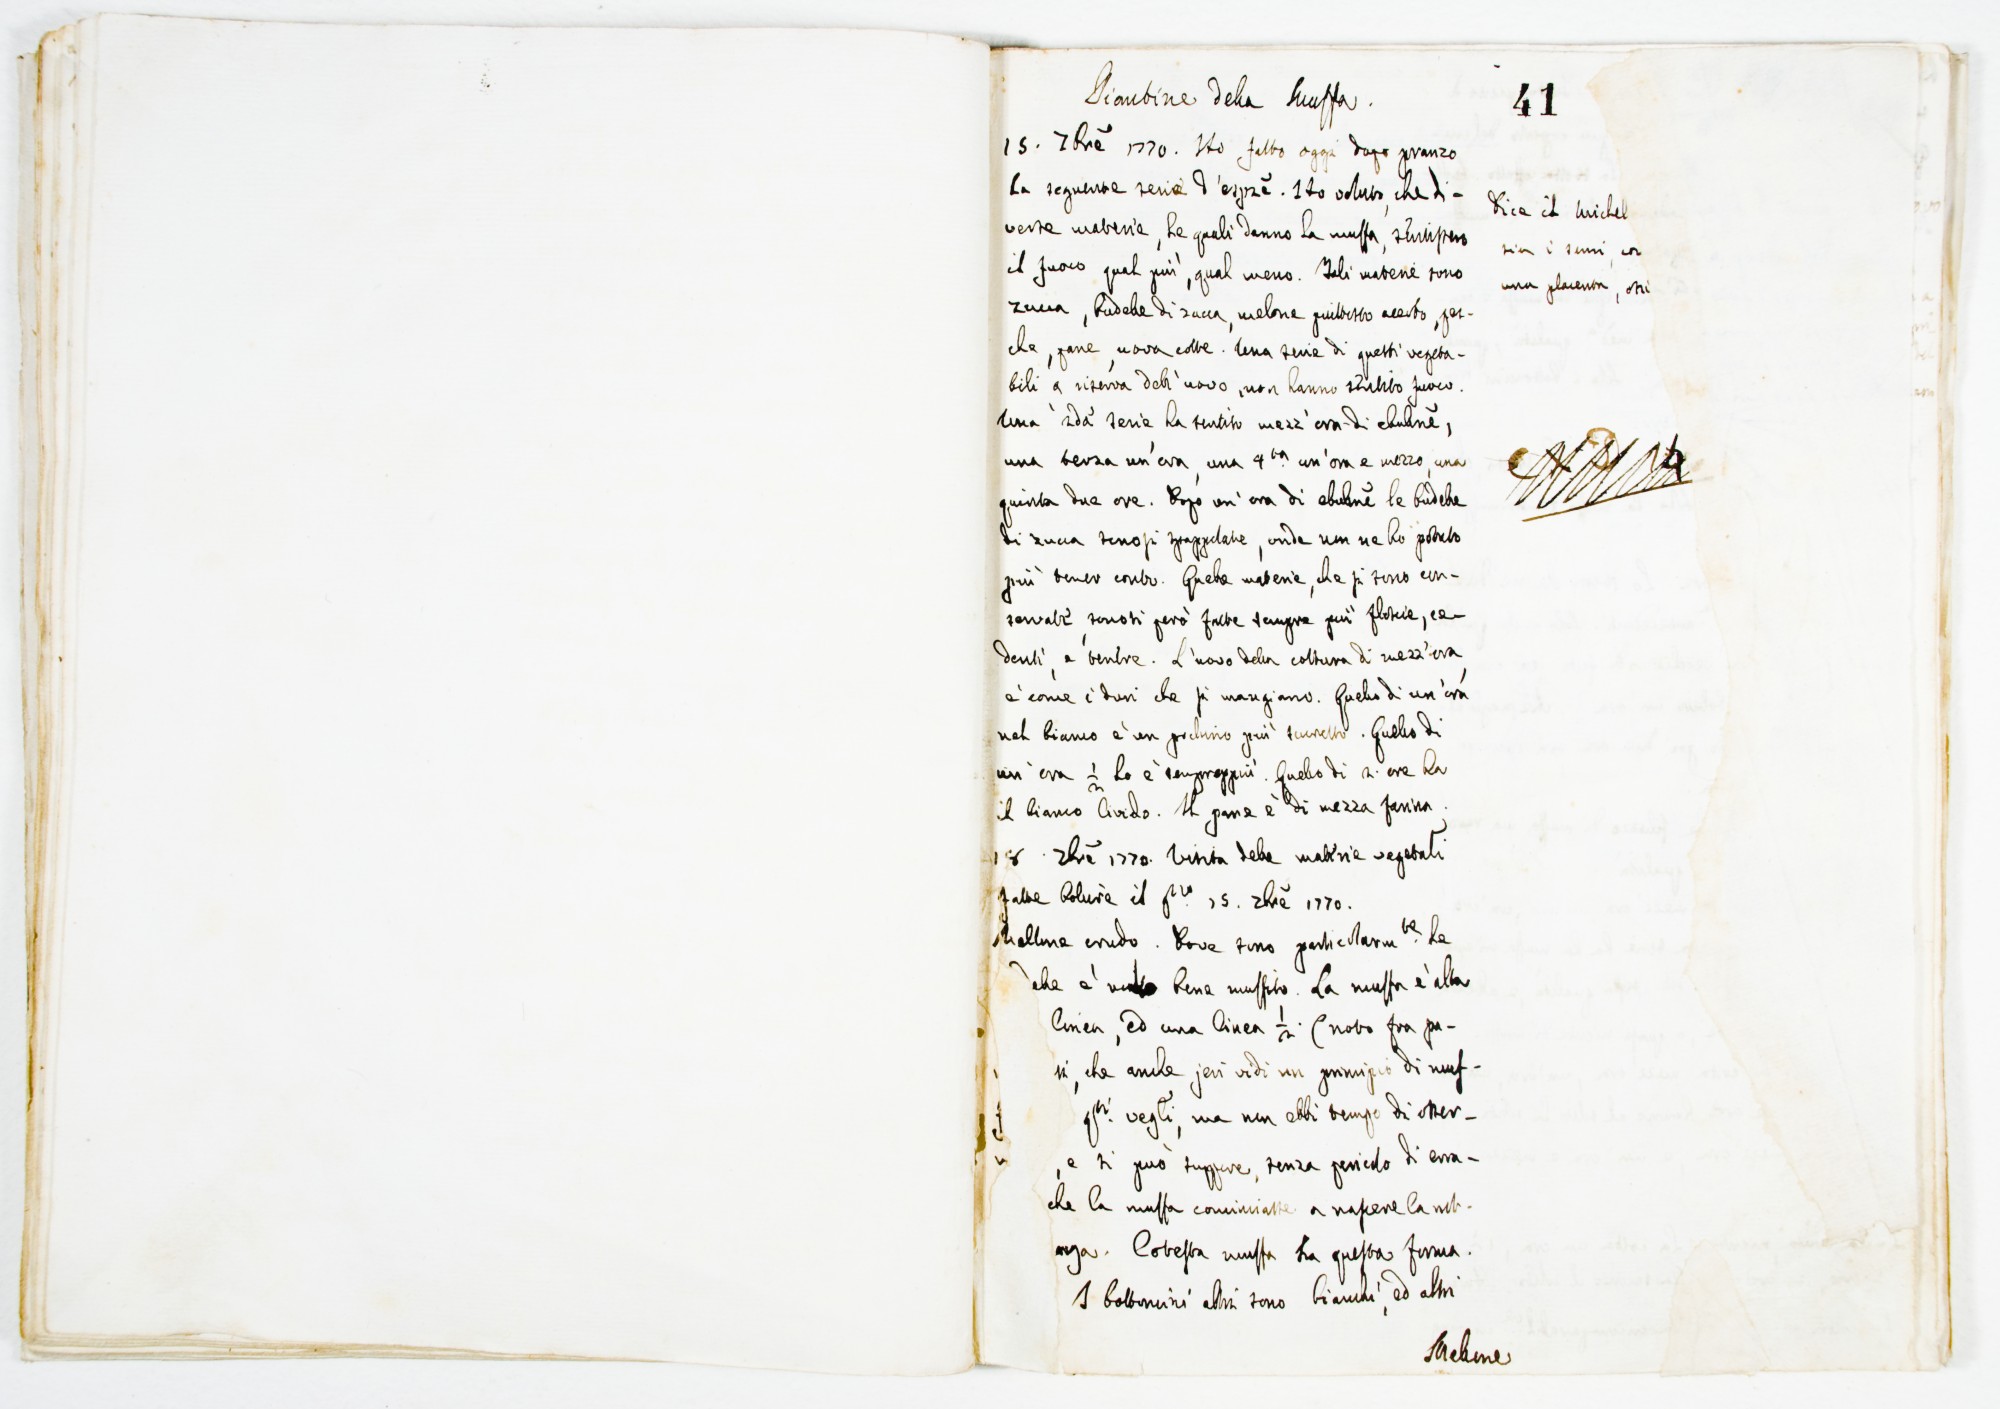 Piantine della Muffa.
41
15. 7bre 1770. Ho fatto oggi dopo pranzo
la seguente serie d'espze. Ho voluto, che di-
verse materie, le quali danno la muffa, sentissero
il fuoco qual più, qual meno. Tali materie sono
zucca, budelle di zucca, melone piuttosto acerbo, pes-
che, pane, uova cotte. Una serie di questi vegeta-
bili a riserva dell'uovo, non hanno sentito fuoco.
Una 2da serie ha sentito mezz'ora di ebulne,
una terza un'ora, una 4ta un'ora e mezzo, una
quinta due ore. Dopo un'ora di ebulne le budelle
di zucca sonosi spappolate, onde non ne ho potuto
più tener conto. Quelle materie, che si sono con-
servate, sonosi però fatte sempre più floscie, ce-
denti, e tenere. L'uovo della cottura di mezz'ora,
è come i duri che si mangiano. Quello di un'ora
nel bianco è un pochino più scuretto. Quello di
un'ora 1/2 lo è sempreppiù. Quello di 2. ore ha
il bianco livido. Il pane è di mezza farina.
18. 7bre 1770. Visita delle materie vegetali
fatte bollire il 15. 7bre 1770.
Mellone crudo. Dove sono particolarmte le
che è bene muffito. La muffa è alta
linea, ed una linea 1/2. (noto fra pa-
si, che anche jeri vidi un principio di muf-
qti vegli, ma non ebbi tempo di osser-
, e si può suppore, senza pericolo di erra-
che la muffa cominciasse a nascere la not-
Cotesta muffa ha questa forma.
I bottoncini altri sono bianchi, ed altri
Mellone
Dice il Michel
sien i semi, co
una placenta, ossi